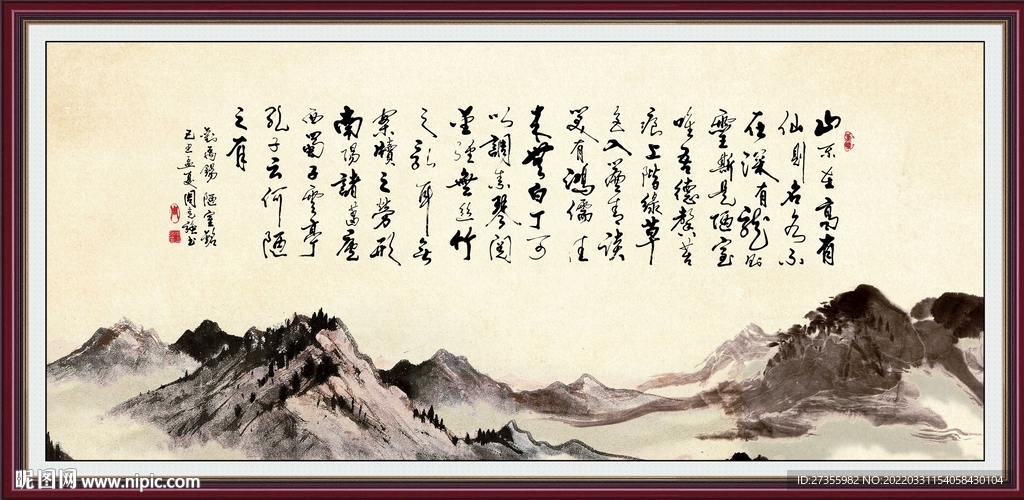 山不在高有
仙則名水不
在深有龍則
靈斯是陋室
唯吾德馨苔
痕上階綠草
色入簾青談
笑有鴻儒往
來無白丁可
以調素琴閱
金經無絲竹
之亂耳無
案牘之勞形
南陽諸葛廬
西蜀子雲亭
孔子云何陋
之有
劉禹錫 陋室銘
己丑孟夏周書
昵图网 www.nipic.com
ID:27355982 NO:20220331154058430104